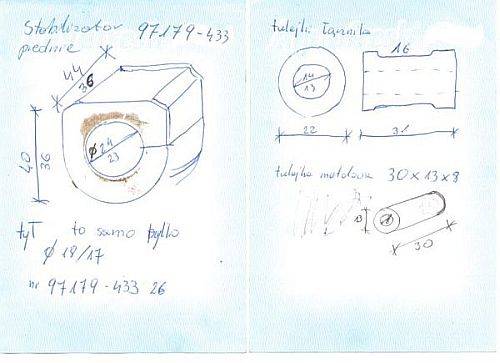 Stabilizator 97179-433
przednie
44
36
40
36
ø 24
23
tył to samo tylko
ø 18/17
nr 97179-433 26
tulejki łącznika
14
13
16
22
31
tulejka metalowa 30x13x8
13
8
30